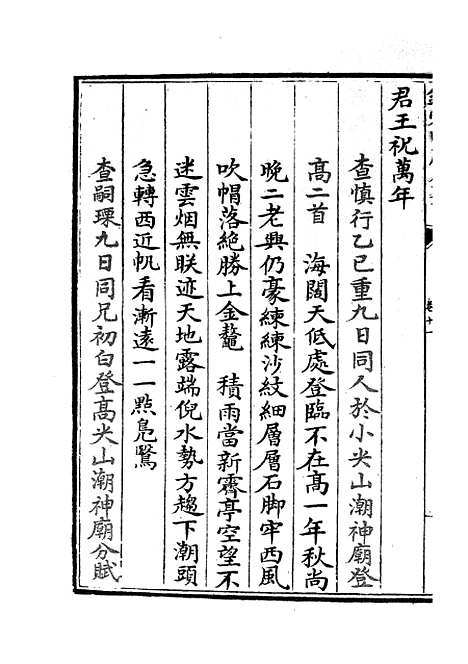 君王祝萬年
查慎行乙巳重九日同人於小尖山潮神廟登
髙二首　海闊天低處登臨不在髙一年秋尚
晚二老興仍豪練練沙紋細層層石脚牢西風
吹帽落絶勝上金鼇　積雨當新霽亭空望不
迷雲烟無朕迹天地露端倪水勢方趨下潮頭
急轉西近帆看漸遠一一㸃鳬鷖
查嗣瑮九日同兄初白登髙尖山潮神廟分賦